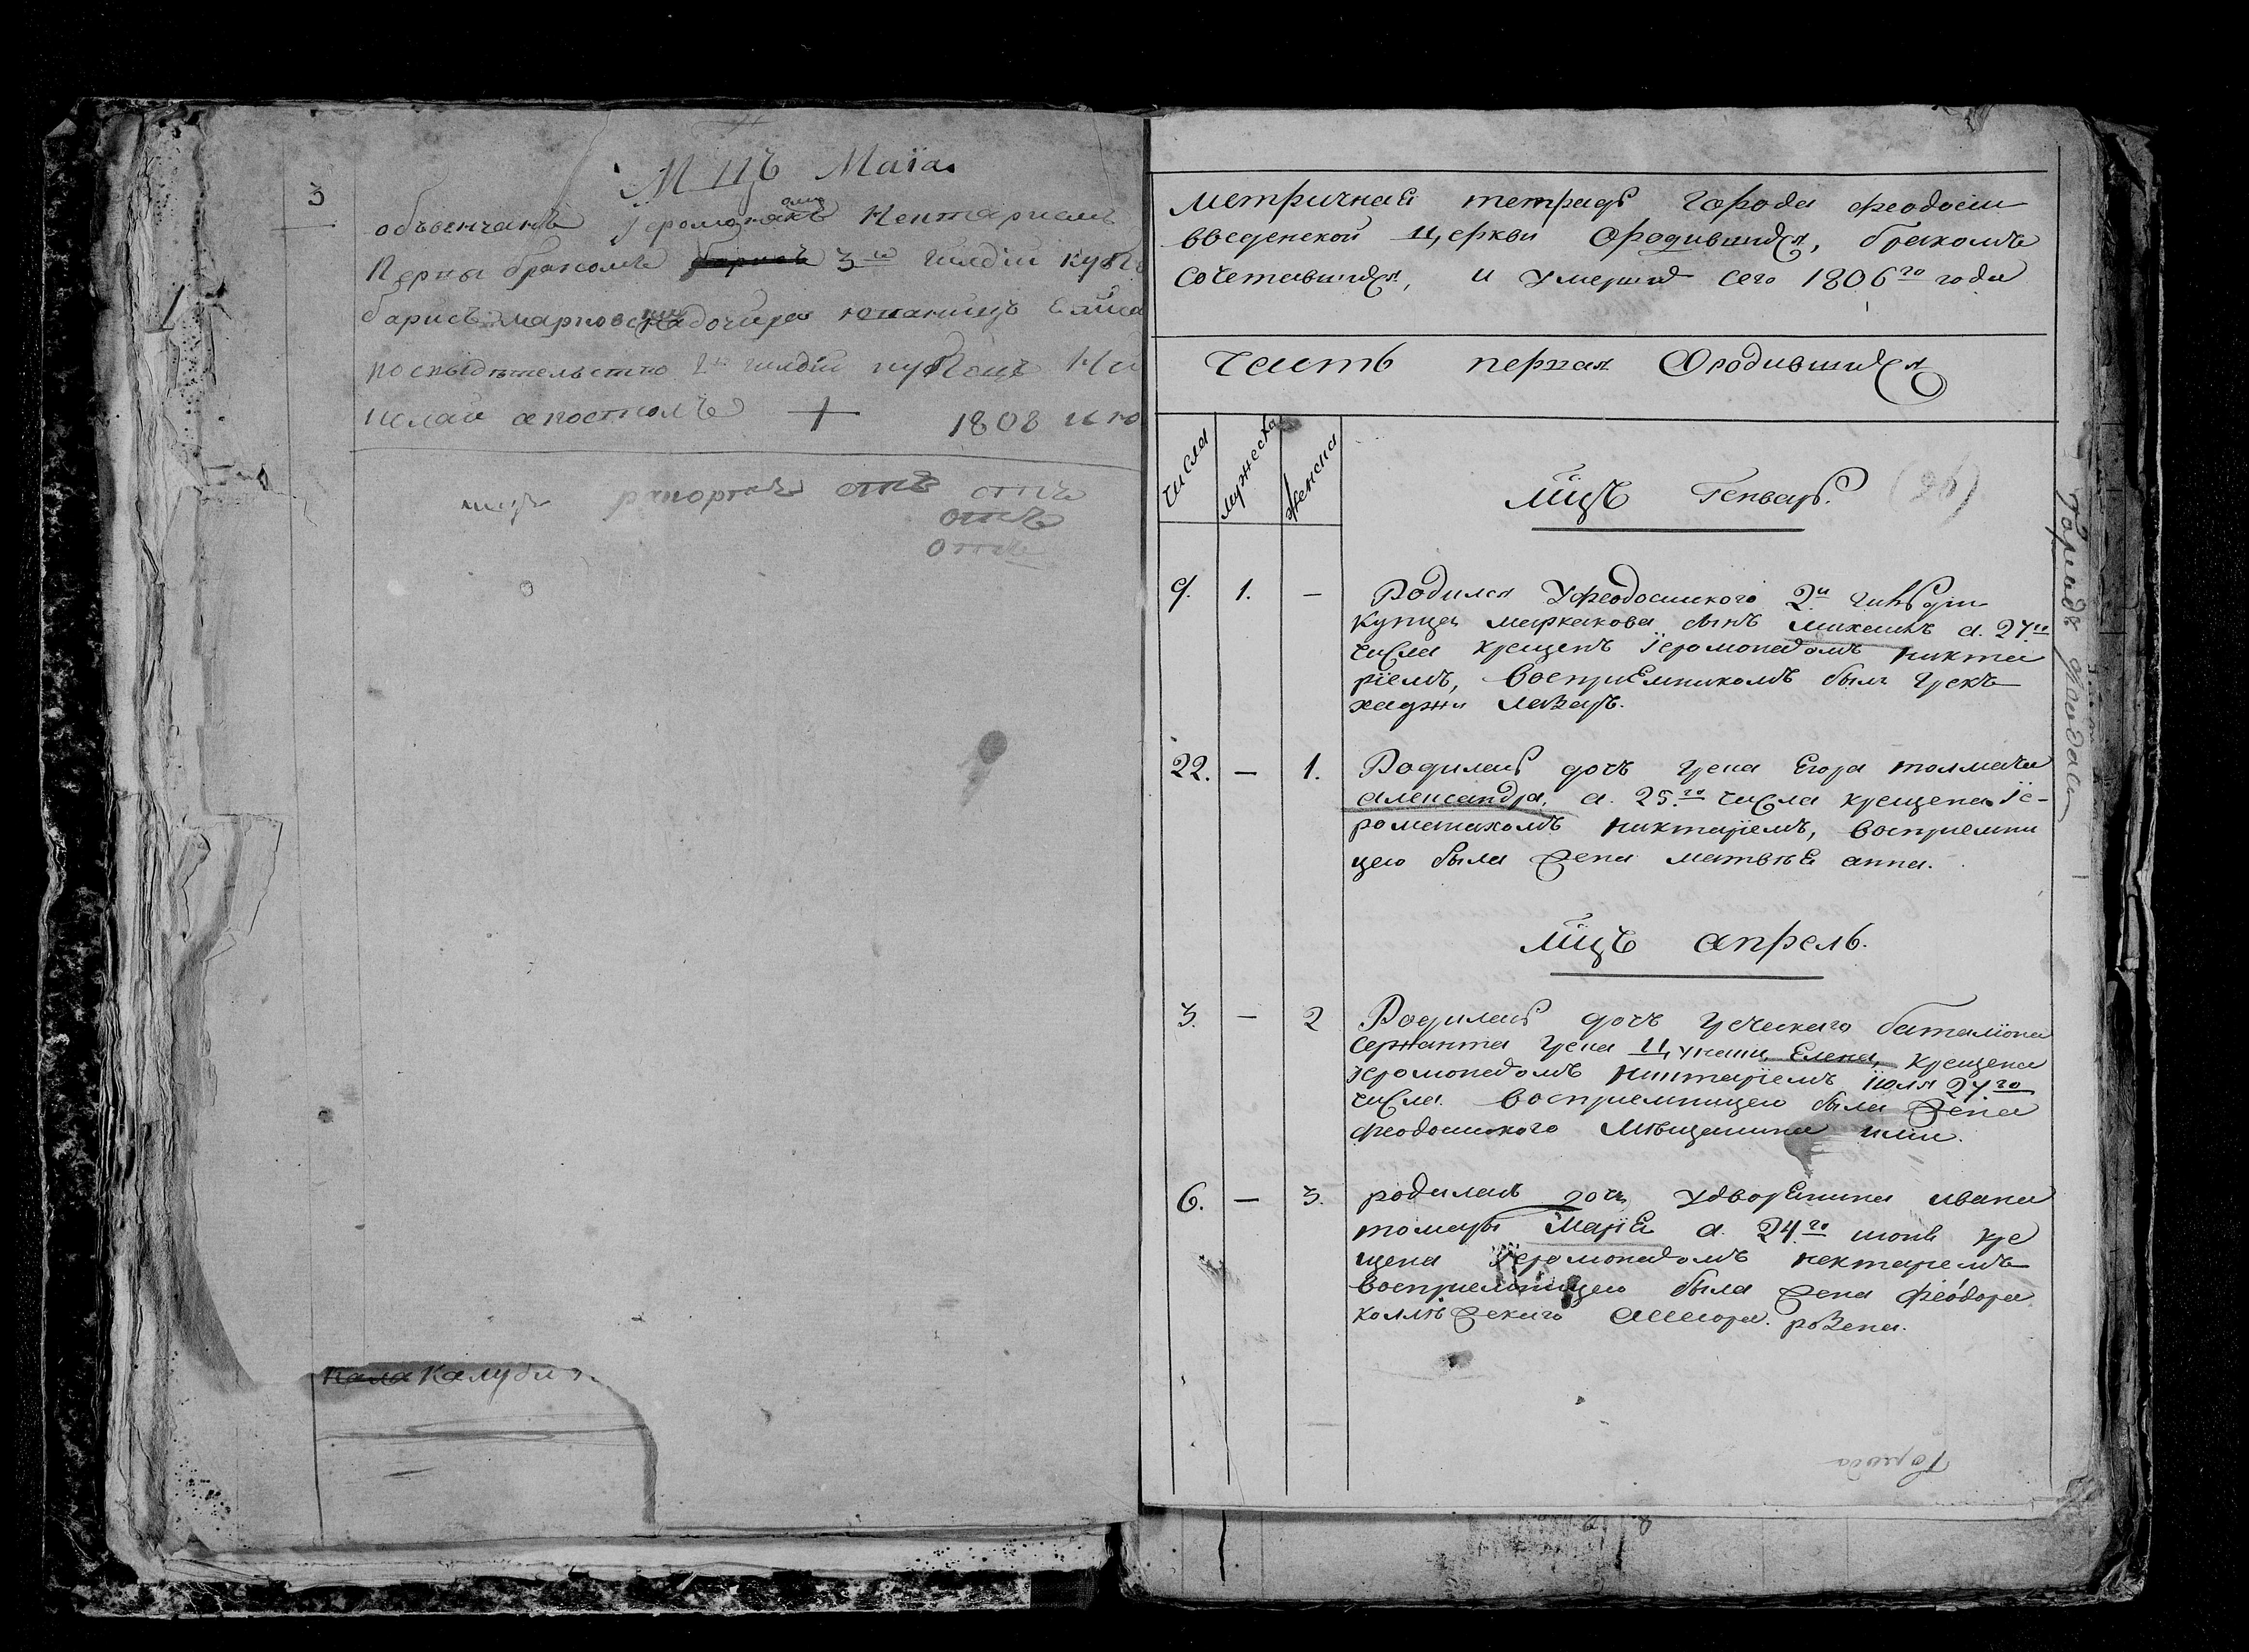 Мцъ Маїа
3
объвенчанъ Іеромонахомъ Нентариемъ
Перпы бракомъ 3ю гилдіи куб
барисъ марковъ дочира юпаницъ
поспидѣтельство 2 гилдіи
колаи апостолъ + 1808 ию
рапортъ отъ отъ
отъ
отъ
Кала Калуди
метричнаѣ тетрадь города феодосіи
введенской церкви Ородившихся, бракомъ
сочетавшихся, и умерших сего 1806го года
часть первая Ородившихся
числа
мужеска
женска
мцъ Генварь. (26)
9. 1. — Родился Уфеодосийского 2й гильдіи
купца маркакова сынъ михаилъ а. 27го
числа крещенъ Іеромонахомъ никта
ріемъ, восприемникомъ былъ грекъ
хаджи лазарь.
22. — 1. Родилась дочь грека Егора толмача
александра, а. 25.го числа крещена Іе-
ромонахомъ никтаріемъ, восприемни
цею была жена матвѣѣ анна.
мцъ апрель.
3. — 2 Родилась дочь греческаго баталіона
сержанта грека Цукаши Елена, крещена
Іеромонахомъ никтаріемъ Іюля 27.го
числа. восприемницею была жена
феодосийского мѣщанина иліи.
6. — 3. родилась дочь Удворѣнина ивана
томары Маріѣ а. 24.го июнѣ кре
щена Іеромонахомъ нектариемъ
восприемницею была жена феодора
коллѣжскаго асессора. розена.
Городъ феодоси
Города